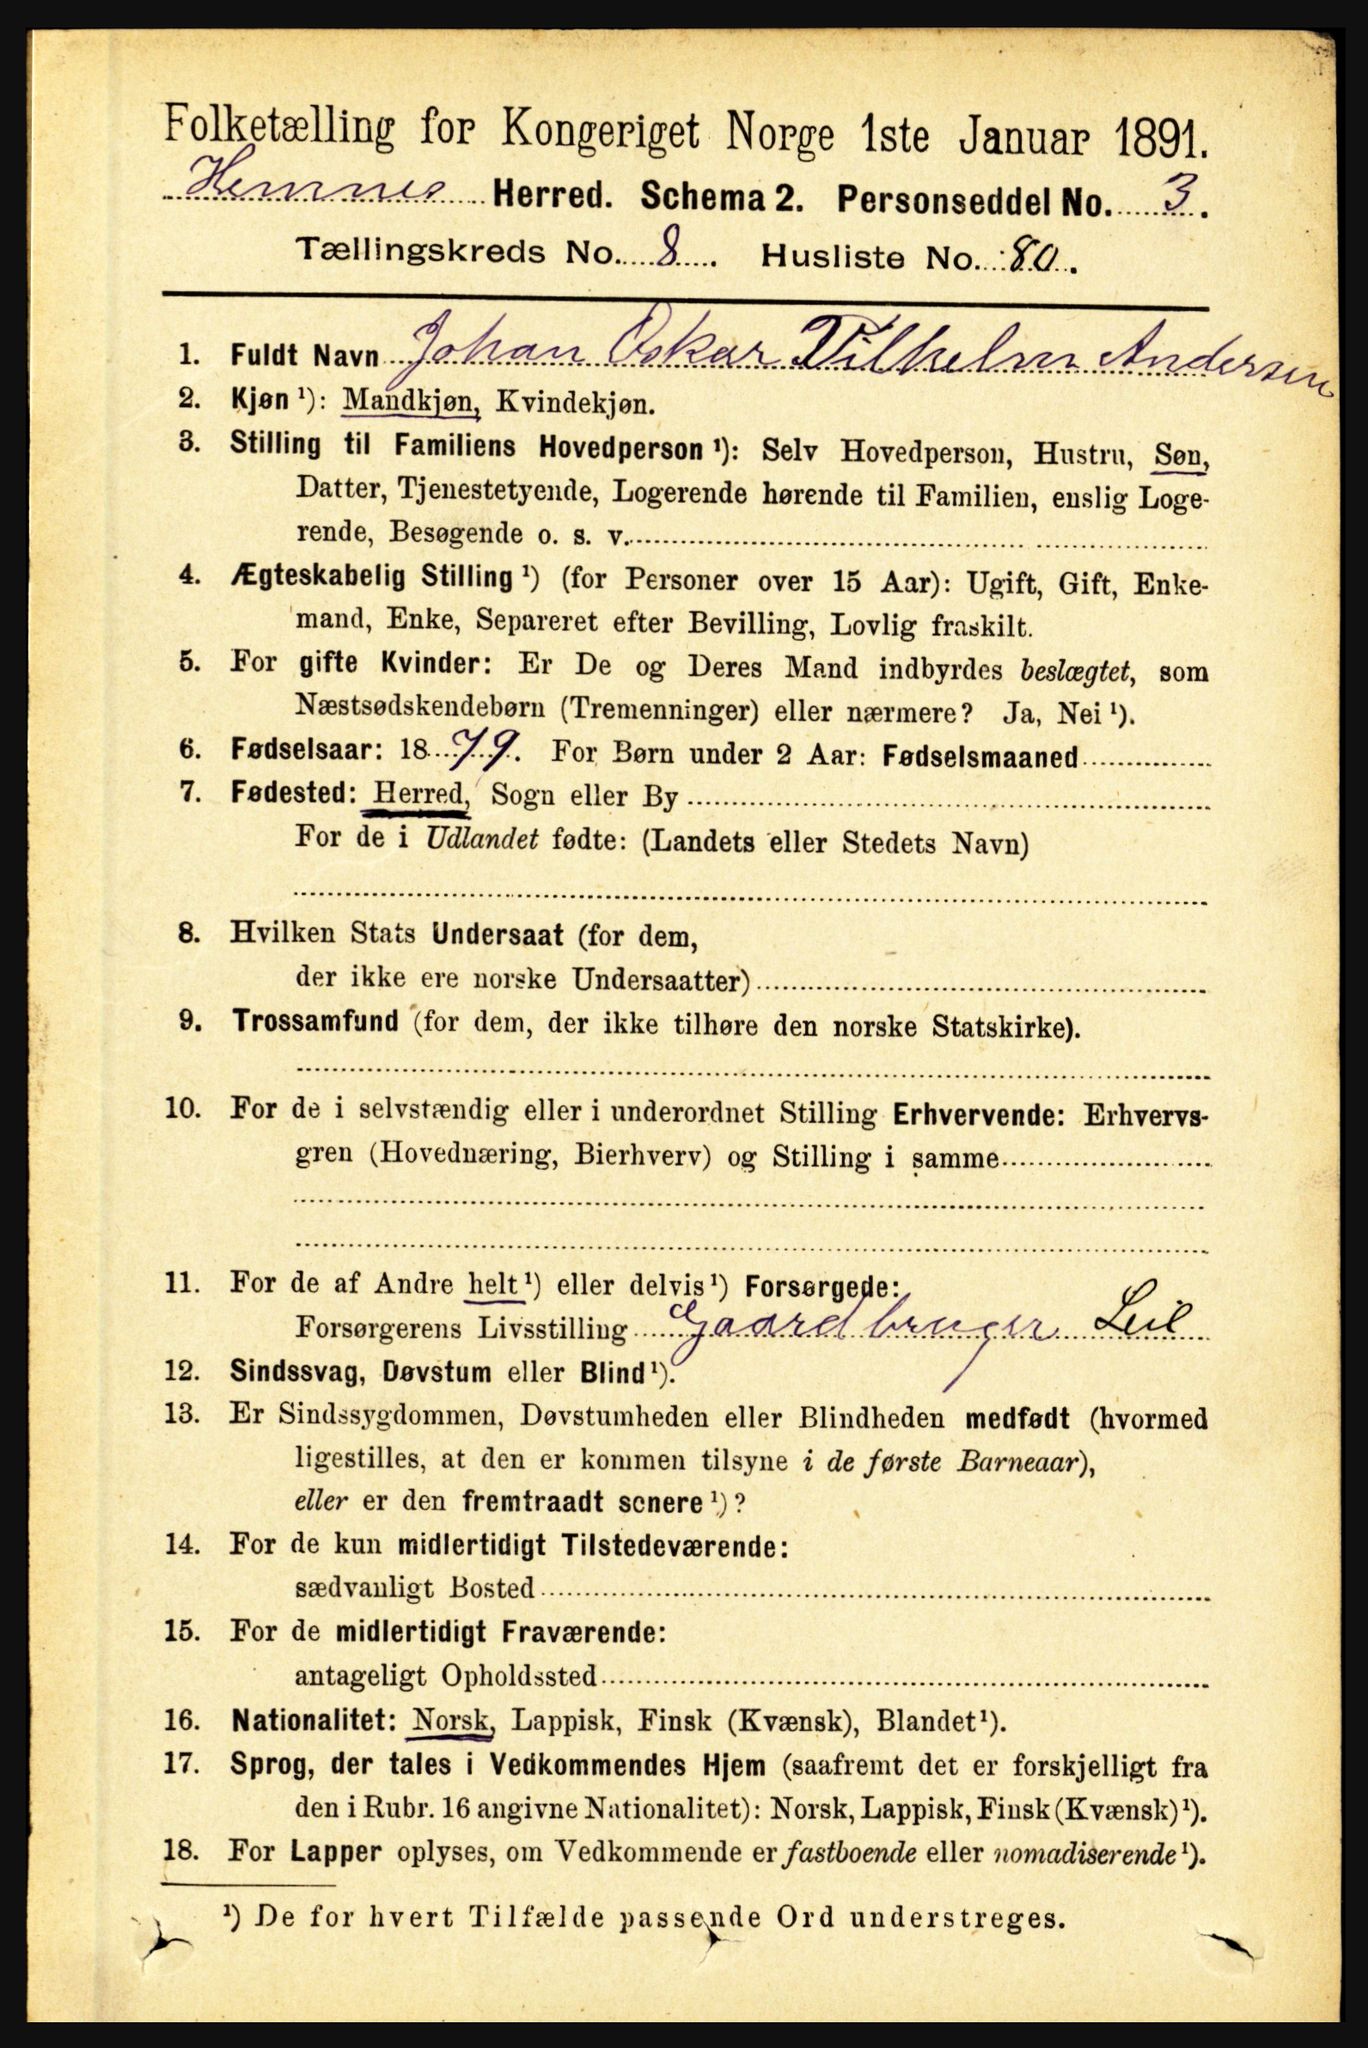 Folketælling for Kongeriget Norge 1ste Januar 1891.
Hemnes Herred. Schema 2. Personseddel No. 3.
Tællingskreds No. 8. Husliste No. 80.
1. Fuldt Navn Johan Oskar Vilhelm Andersen
2. Kjøn ¹): Mandkjøn, Kvindekjøn.
3. Stilling til Familiens Hovedperson ¹): Selv Hovedperson, Hustru, Søn,
Datter, Tjenestetyende, Logerende hørende til Familien, enslig Loge-
rende, Besøgende o. s. v.
4. Ægteskabelig Stilling ¹) (for Personer over 15 Aar): Ugift, Gift, Enke-
mand, Enke, Separeret efter Bevilling, Lovlig fraskilt.
5. For gifte Kvinder: Er De og Deres Mand indbyrdes beslægtet, som
Næstsødskendebørn (Tremenninger) eller nærmere? Ja, Nei ¹).
6. Fødselsaar: 1879. For Børn under 2 Aar: Fødselsmaaned
7. Fødested: Herred, Sogn eller By
For de i Udlandet fødte: (Landets eller Stedets Navn)
8. Hvilken Stats Undersaat (for dem,
der ikke ere norske Undersaatter)
9. Trossamfund (for dem, der ikke tilhøre den norske Statskirke).
10. For de i selvstændig eller i underordnet Stilling Erhvervende: Erhvervs-
gren (Hovednæring, Bierhverv) og Stilling i samme
11. For de af Andre helt ¹) eller delvis ¹) Forsørgede:
Forsørgerens Livsstilling Gaardbruger Leil
12. Sindssvag, Døvstum eller Blind ¹).
13. Er Sindssygdommen, Døvstumheden eller Blindheden medfødt (hvormed
ligestilles, at den er kommen tilsyne i de første Barneaar),
eller er den fremtraadt senere ¹)?
14. For de kun midlertidigt Tilstedeværende:
sædvanligt Bosted
15. For de midlertidigt Fraværende:
antageligt Opholdssted
16. Nationalitet: Norsk, Lappisk, Finsk (Kvænsk), Blandet ¹).
17. Sprog, der tales i Vedkommendes Hjem (saafremt det er forskjelligt fra
den i Rubr. 16 angivne Nationalitet): Norsk, Lappisk, Finsk (Kvænsk) ¹).
18. For Lapper oplyses, om Vedkommende er fastboende eller nomadiserende ¹).
¹) De for hvert Tilfælde passende Ord understreges.